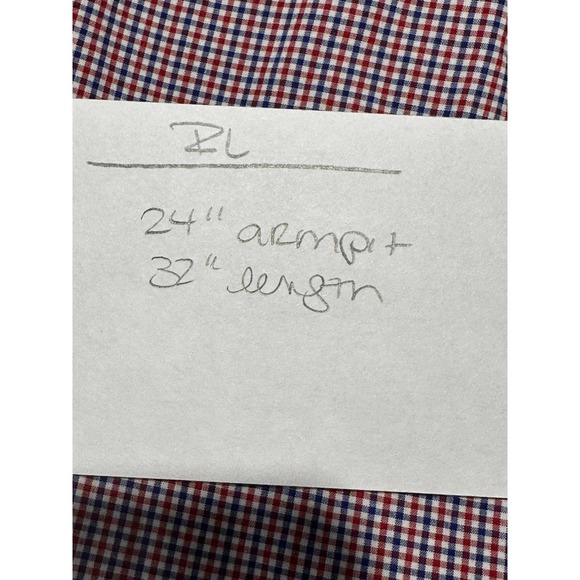 RL
24" armpit
32" length